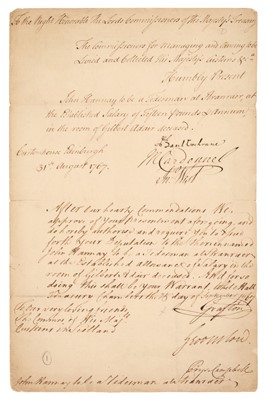 To the Right Honorable the Lords Commissioners of His Majestys Treasury
The Commissioners for Managing and Causing to be
Levied and Collected His Majestys Customs &ca
Humbly Present
John Hannay to be a Tidesman at Stranraer, at
the Established Salary of Fifteen Pounds p Annum
in the room of Gilbert Adair deceased.
Customhouse Edinburgh
31st August 1767.
Basil Cochrane
M Cardonnel
After our hearty Commendations We
approve of Your Presentment aforegoing, and
do hereby authorise and require You to Send
forth Your Deputation to the therein named
John Hannay to be a Tidesman at Stranraer
at the Established allowance or Salary in the
room of Gilbert Adair deceased. And for so
doing this shall be Your Warrant. Whitehall
Treasury Chambers the day of September 1767
To Our very loving Friends
the Commrs of His Majts
Customs in Scotland
Grafton
North
Pryse Campbell
John Hannay to be a Tidesman at Stranraer